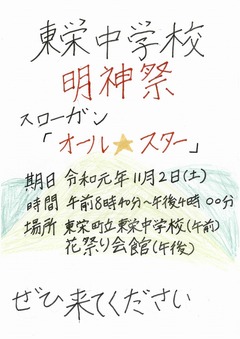 東栄中学校
明神祭
スローガン
「オール★スター」
期日 令和元年11月2日(土)
時間 午前8時40分~午後4時00分
場所 東栄町立東栄中学校(午前)
花祭り会館(午後)
ぜひ来てください